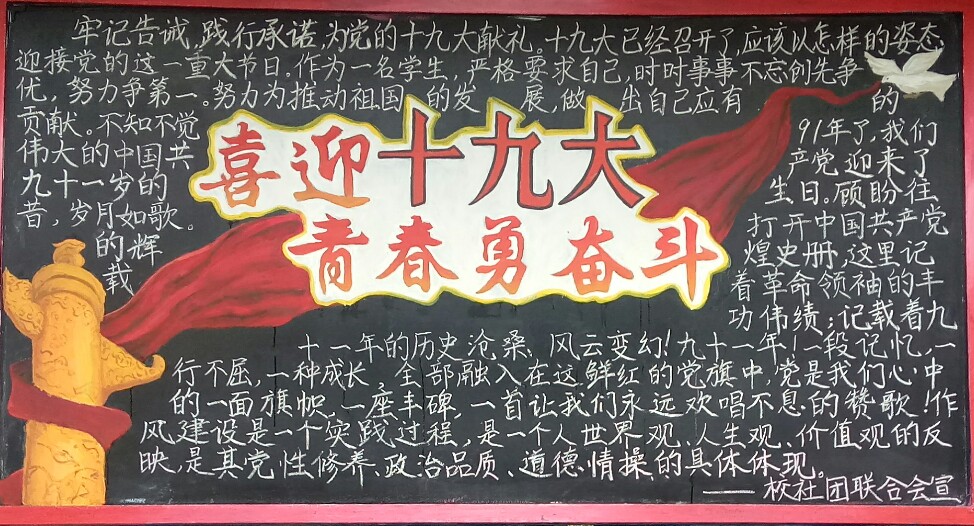 牢记告诫,践行承诺,为党的十九大献礼。十九大已经召开了,应该以怎样的姿态
迎接党的这一重大节日。作为一名学生,严格要求自己,时时事事不忘创先争
优,努力争第一。努力为推动祖国的发展,做出自己应有的
贡献。不知不觉 91年了,我们
伟大的中国共产党迎来了
九十一岁的生日。顾盼往
昔,岁月如歌。打开中国共产党
的辉煌史册,这里记
载着革命领袖的丰
功伟绩;记载着九
喜迎十九大
青春勇奋斗
十一年的历史沧桑,风云变幻!九十一年!一段记忆,一
行不屈,一种成长,全部融入在这鲜红的党旗中,党是我们心中
的一面旗帜,一座丰碑,一首让我们永远欢唱不息的赞歌!作
风建设是一个实践过程,是一个人世界观、人生观、价值观的反
映,是其党性修养、政治品质、道德情操的具体体现。
——校社团联合会宣